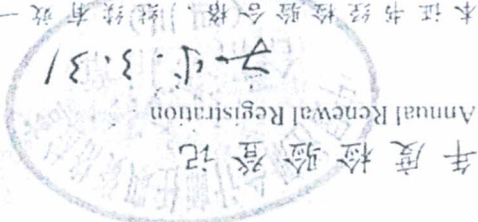 年度检验登记
Annual Renewal Registration
本证书经检验合格，继续有效一